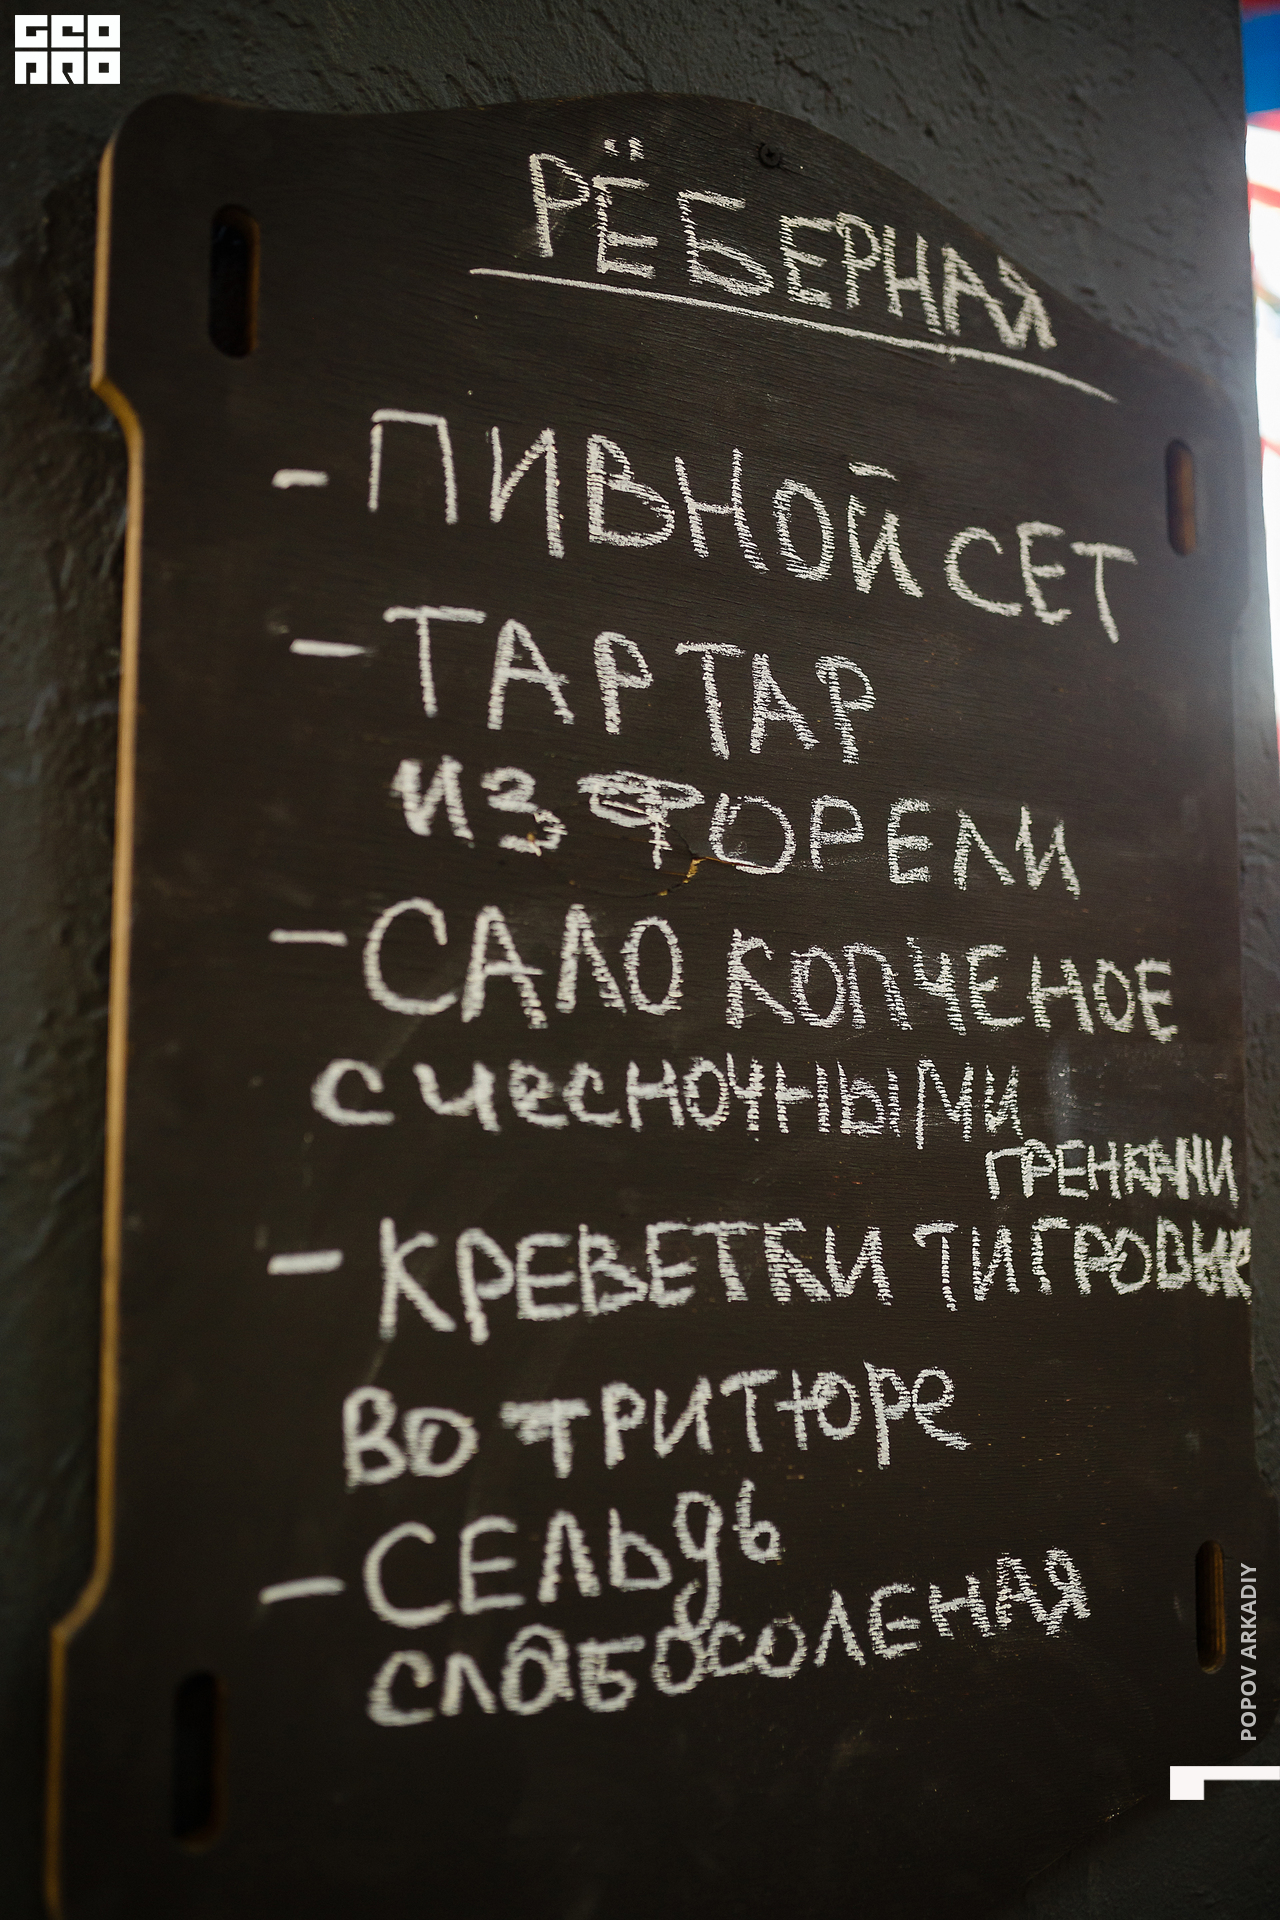 GEO
PRO
РЁБЕРНАЯ
- ПИВНОЙ СЕТ
- ТАРТАР
ИЗ ФОРЕЛИ
- САЛО КОПЧЕНОЕ
С ЧЕСНОЧНЫМИ
ГРЕНКАМИ
- КРЕВЕТКИ ТИГРОВЫЕ
ВО ТРИТЮРЕ
- СЕЛЬДЬ
СЛАБОСОЛЕНАЯ
POPOV ARKADIY